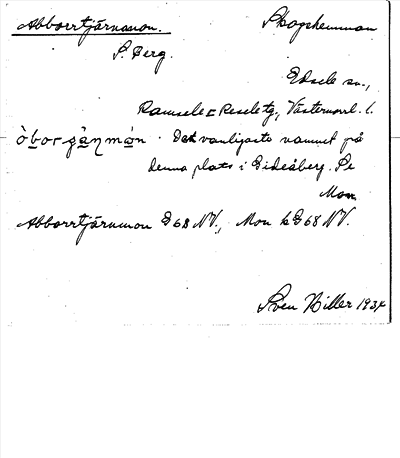 Abborrtjärnmon. Skogshemman
S. Berg.
Edsele sn.,
Ramsele o Resele tg, Västernorrl. l.
Det vanligaste namnet på
denna plats i Eideåberg. Se
Mon.
Abborrtjärnmon G68 NV., Mon b G68 NV.
Sven Hiller 1934